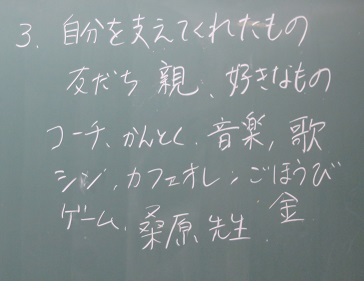 3. 自分を支えてくれたもの
友だち 親、好きなもの
コーチ、かんとく、音楽、歌
シン、カフェオレ、ごほうび
ゲーム、桑原先生、金